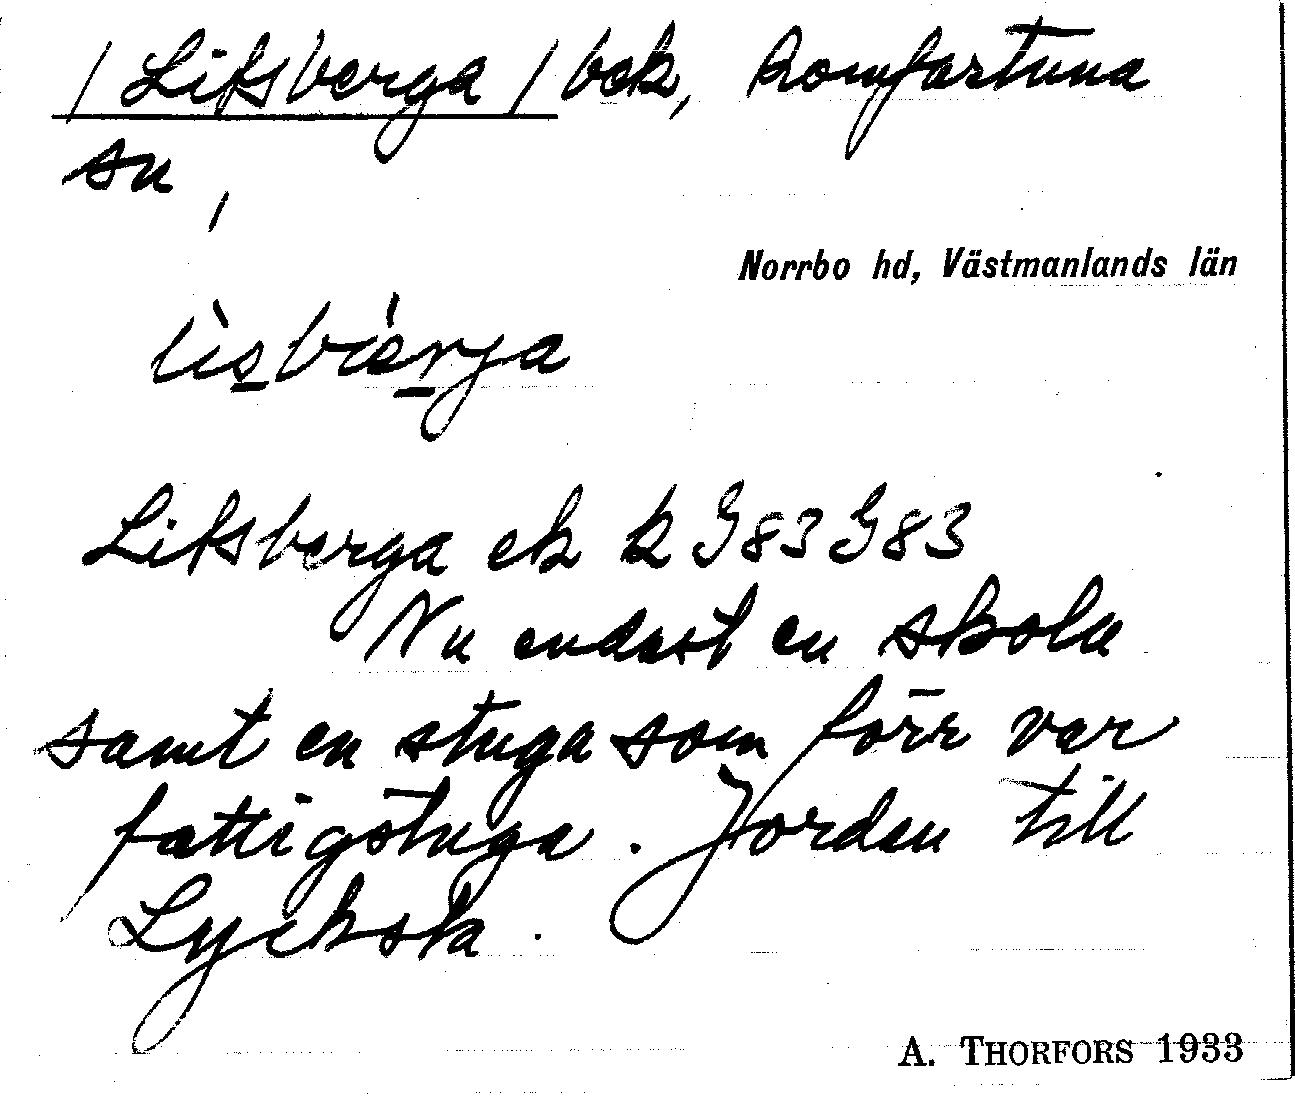 / Lifsberga / bok, Romfartuna
sn,
Norrbo hd, Västmanlands län
lìsbiǽrja
Lifsberga ek k G83 G83
Nu endast en skola
samt en stuga som förr var
fattigstuga. Jorden till
Lycksta.
A. THORFORS 1933